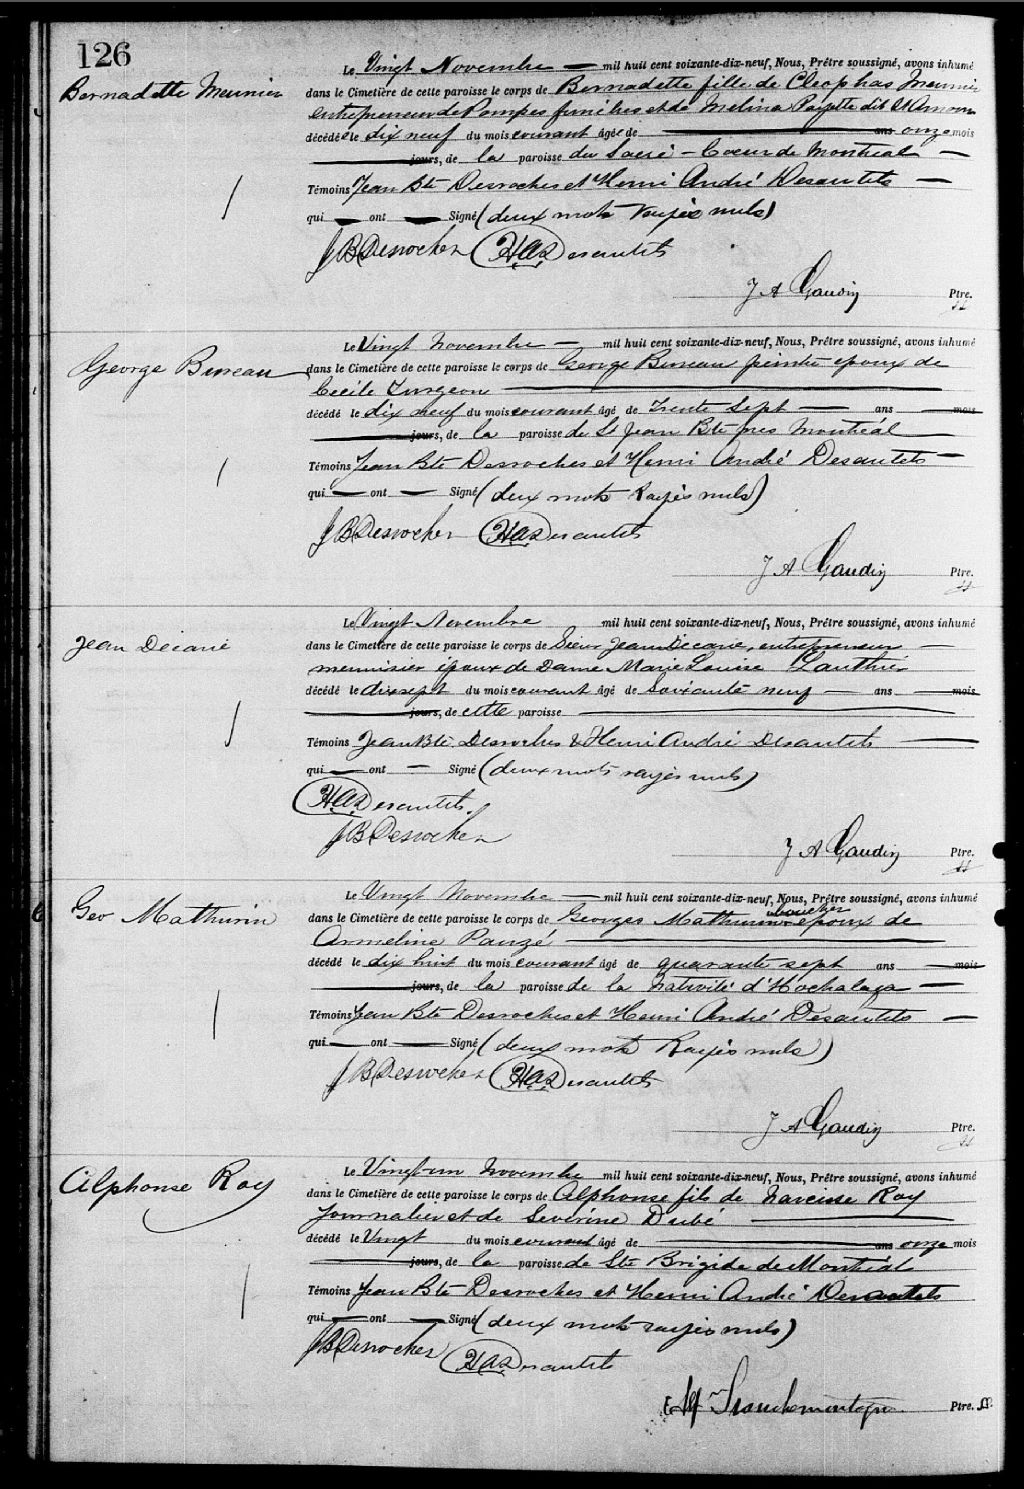 126
Bernadette Meunier
Le Vingt Novembre — mil huit cent soixante-dix-neuf, Nous, Prêtre soussigné, avons inhumé
dans le Cimetière de cette paroisse le corps de Bernadette fille de Cleophas Meunier
entrepreneur de Pompes funèbres et de Melina Payette dit St Amour
décédée le dix neuf du mois courant âgée de — ans onze mois
— jours, de la paroisse du Sacré-Coeur de Montréal —
Témoins Jean Bte Desroches et Henri André Desautels —
qui — ont — Signé (deux mots rayés nuls)
J B Desrocher H.A.Desautels
J A Gaudin Ptre.
George Bureau
Le Vingt Novembre — mil huit cent soixante-dix-neuf, Nous, Prêtre soussigné, avons inhumé
dans le Cimetière de cette paroisse le corps de George Bureau peintre epoux de
Cecile Turgeon
décédé le dix neuf du mois courant âgé de Trente Sept — ans — mois
— jours, de la paroisse de St Jean Bte pres Montréal
Témoins Jean Bte Desroches et Henri André Desautels —
qui — ont — Signé (deux mots Rayés nuls)
J B Desrocher H.A.Desautels
J A Gaudin Ptre.
Jean Décarie
Le Vingt Novembre mil huit cent soixante-dix-neuf, Nous, Prêtre soussigné, avons inhumé
dans le Cimetière de cette paroisse le corps de Sieur Jean Décarie, entrepreneur —
menuisier époux de Dame Marie Louise Gauthier
décédé le dix sept du mois courant âgé de Soixante neuf — ans — mois
— jours, de cette paroisse —
Témoins Jean Bte Desroches & Henri André Desautels —
qui — ont — Signé (deux mots rayés nuls)
H.A.Desautels.
J B Desrocher
J A Gaudin Ptre.
Geo Mathurin
Le Vingt Novembre — mil huit cent soixante-dix-neuf, Nous, Prêtre soussigné, avons inhumé
boucher
dans le Cimetière de cette paroisse le corps de Georges Mathurin epoux de
Armeline Pauzé —
décédé le dix huit du mois courant âgé de quarante sept ans — mois
— jours, de la paroisse de la Nativité d'Hochelaga —
Témoins Jean Bte Desroches et Henri André Desautels —
qui — ont — Signé (deux mots Rayés nuls)
J B Desrocher H.A.Desautels
J A Gaudin Ptre.
Alphonse Roy
Le Vingt-un Novembre mil huit cent soixante-dix-neuf, Nous, Prêtre soussigné, avons inhumé
dans le Cimetière de cette paroisse le corps de Alphonse fils de Narcisse Roy
Journalier et de Severine Dubé —
décédé le Vingt du mois courant âgé de — ans onze mois
— jours, de la paroisse de Ste Brigide de Montréal
Témoins Jean Bte Desroches et Henri André Desautels
qui — ont — Signé (deux mots rayés nuls)
J B Desrocher
H.A.Desautels
Ptre.